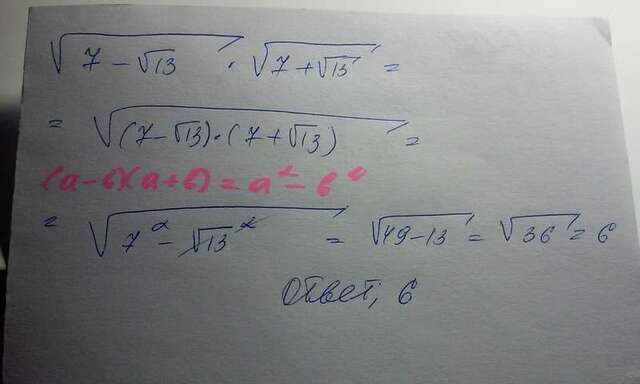 √(7 - √13) · √(7 + √13) =
= √((7 - √13) · (7 + √13)) =
(a - b)(a + b) = a² - b²
= √(7² - √13²) = √(49 - 13) = √36 = 6
Ответ, 6